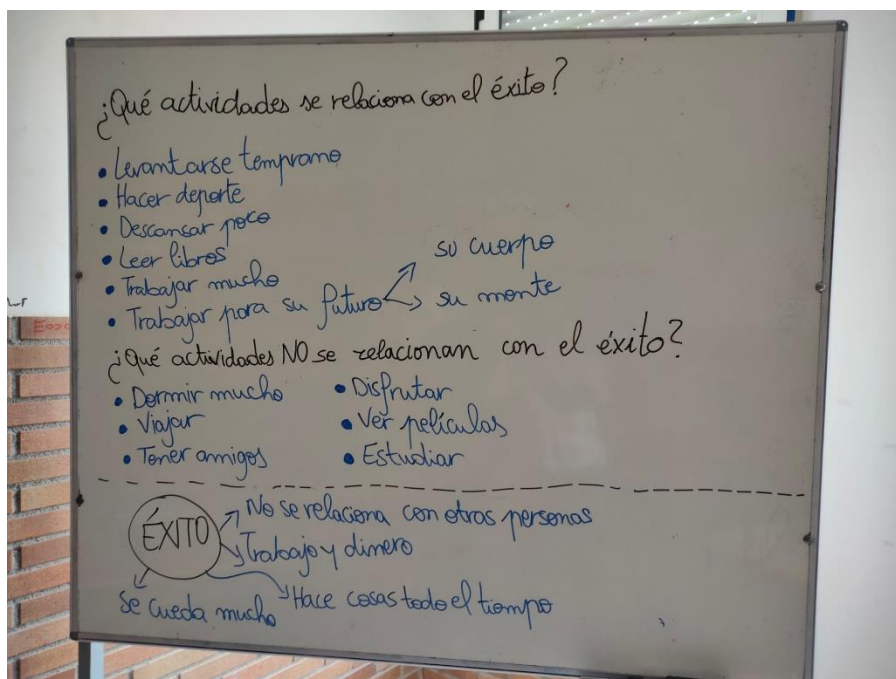 ¿Qué actividades se relaciona con el éxito?
• Levantarse temprano
• Hacer deporte
• Descansar poco
• Leer libros
• Trabajar mucho
• Trabajar para su futuro
su cuerpo
su mente
¿Qué actividades NO se relacionan con el éxito?
• Dormir mucho
• Viajar
• Tener amigos
• Disfrutar
• Ver películas
• Estudiar
ÉXITO
No se relaciona con otras personas
Trabajo y dinero
Hace cosas todo el tiempo
se cueda mucho